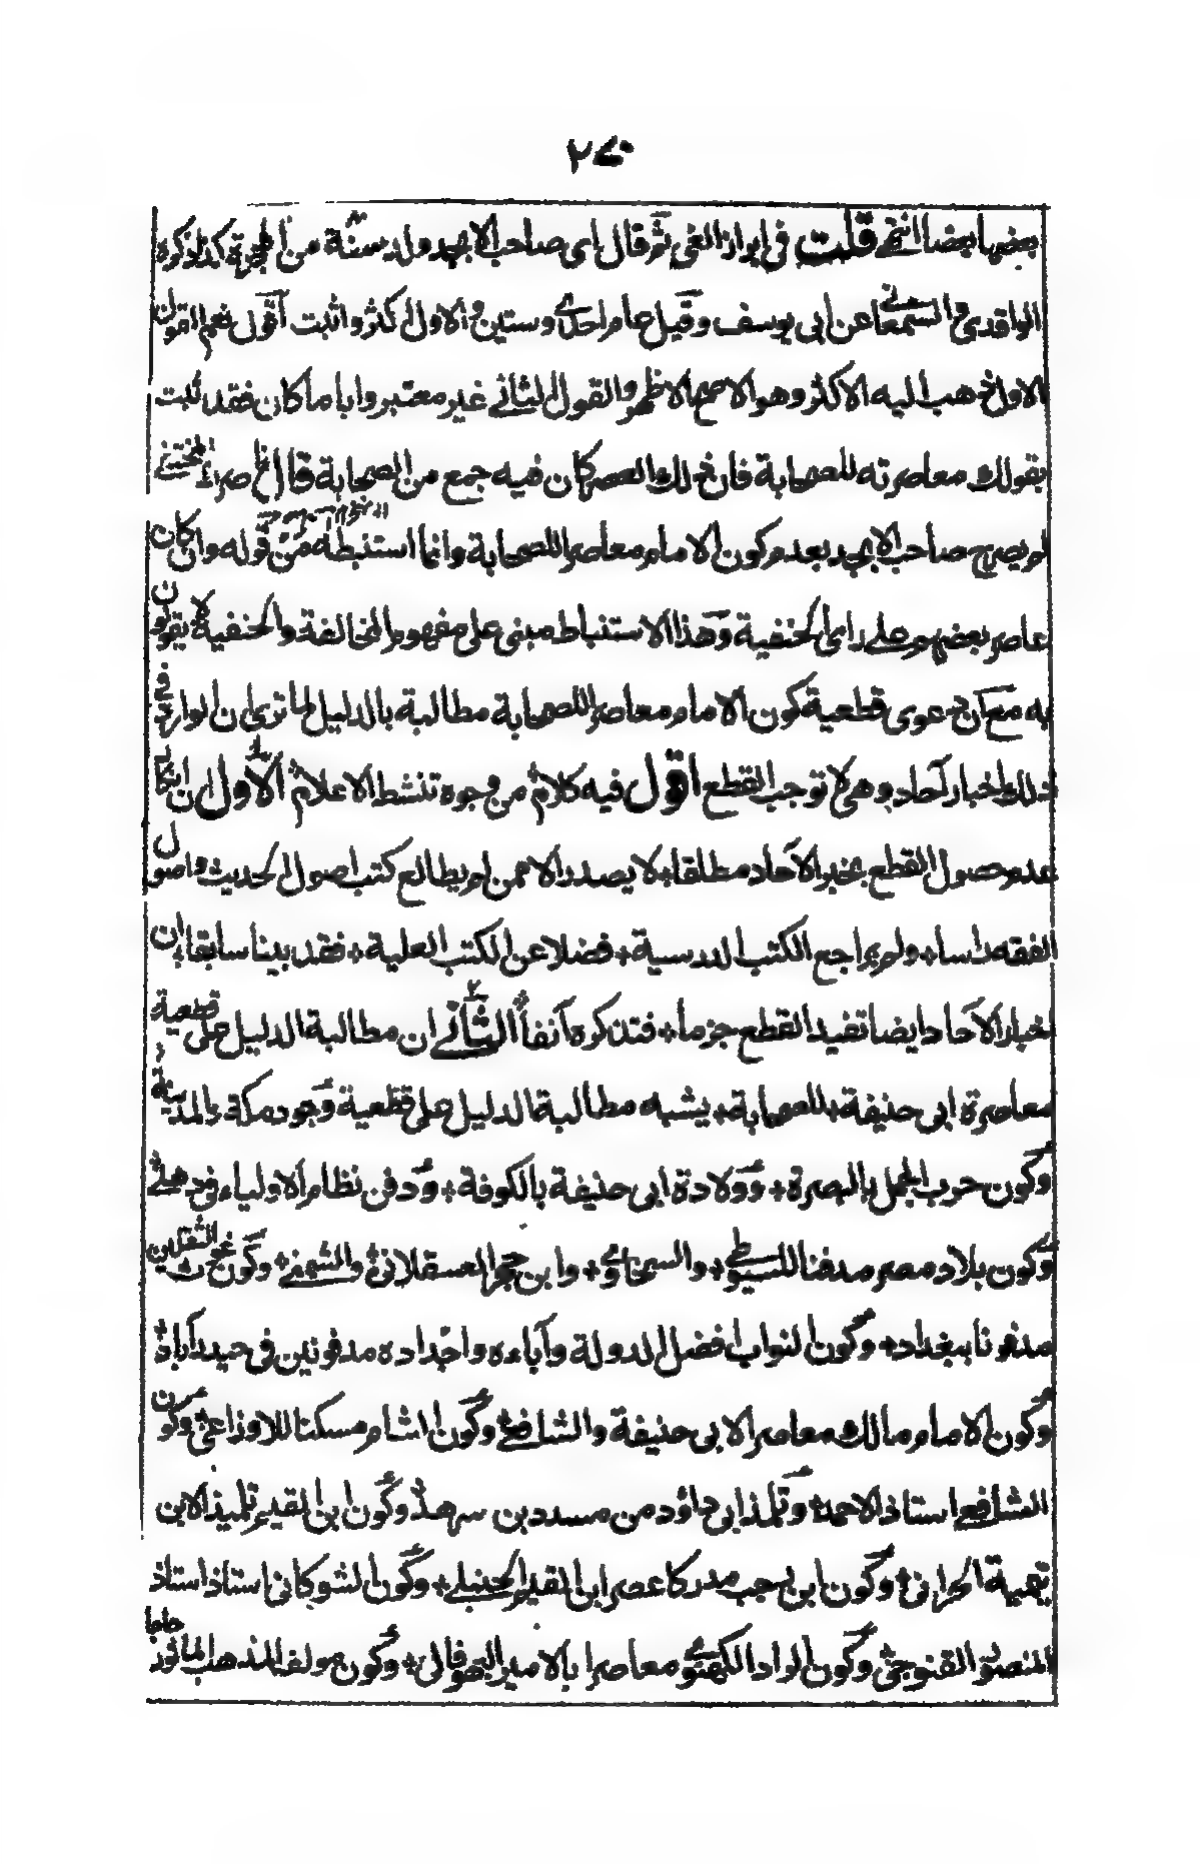 ٢٧٠
بعضها بعضا انتهى قلت في ابراز الغي ثم قال اي صاحب الابجد ولد سنة من الهجرة كذا ذكره
الواقدي والسمعاني عن ابي يوسف وقيل عام احدى وستين والاول اكثر واثبت اقول نعم القول
الاول ذهب اليه الاكثر وهو الاصح الاظهر والقول الثاني غير معتبر وايا ما كان فقد ثبت
بقولك معاصرته للصحابة فان ذلك العصر كان فيه جمع من الصحابة قال
لم يصرح صاحب الابجد بعدم كون الامام معاصرا للصحابة وانما استنبطه من قوله وان كان
عاصر بعضهم على راي الحنفية وهذا الاستنباط مبني على مفهوم المخالفة والحنفية لا يقولون
به مع كن دعوى قطعية كون الامام معاصرا للصحابة مطالبة بالدليل لما ترى ان الوارد في
ذلك اخبار آحاد وهي لا توجب القطع اقول فيه كلام من وجوه تنشط الاعلام الاول ان انكار
عدم حصول القطع بخبر الآحاد مطلقا لا يصدر الا ممن لم يطالع كتب اصول الحديث واصول
الفقه راسا + ولم يراجع الكتب الدرسية + فضلا عن الكتب العلية + فقد بينا سابقا ان
اخبار الآحاد ايضا تفيد القطع جزما + فتذكره آنفا الثاني ان مطالبة الدليل على قطعية
معاصرة ابي حنيفة + للصحابة + يشبه مطالبة الدليل على قطعية وجود مكة والمدينة
وكون حرب الجمل بالبصرة + وولادة ابي حنيفة بالكوفة + ودفن نظام الاولياء في دهلي +
وكون بلاد مصر مدفنا للسيوطي + والسخاوي + وابن حجر العسقلاني + والشمني + وكون غوث الثقلين
مدفونا ببغداد + وكون النواب افضل الدولة وآباءه واجداده مدفونين في حيدرآباد +
وكون الامام مالك معاصرا لابي حنيفة والشافعي وكون الشام مسكنا للاوزاعي وكون
الشافعي استاذ الاحمد + وتلمذ ابي داؤد من مسدد بن سرهد + وكون ابن القيم تلميذ الابن
تيمية الحراني + وكون ابن رجب مدركا عصر ابن القيم الحنبلي + وكون الشوكاني استاذ استاذ
المنصور القنوجي + وكون الوالد اللكهنوي معاصرا بالامير البهوفالي + وكون مولف المذهب الماثور حاجا